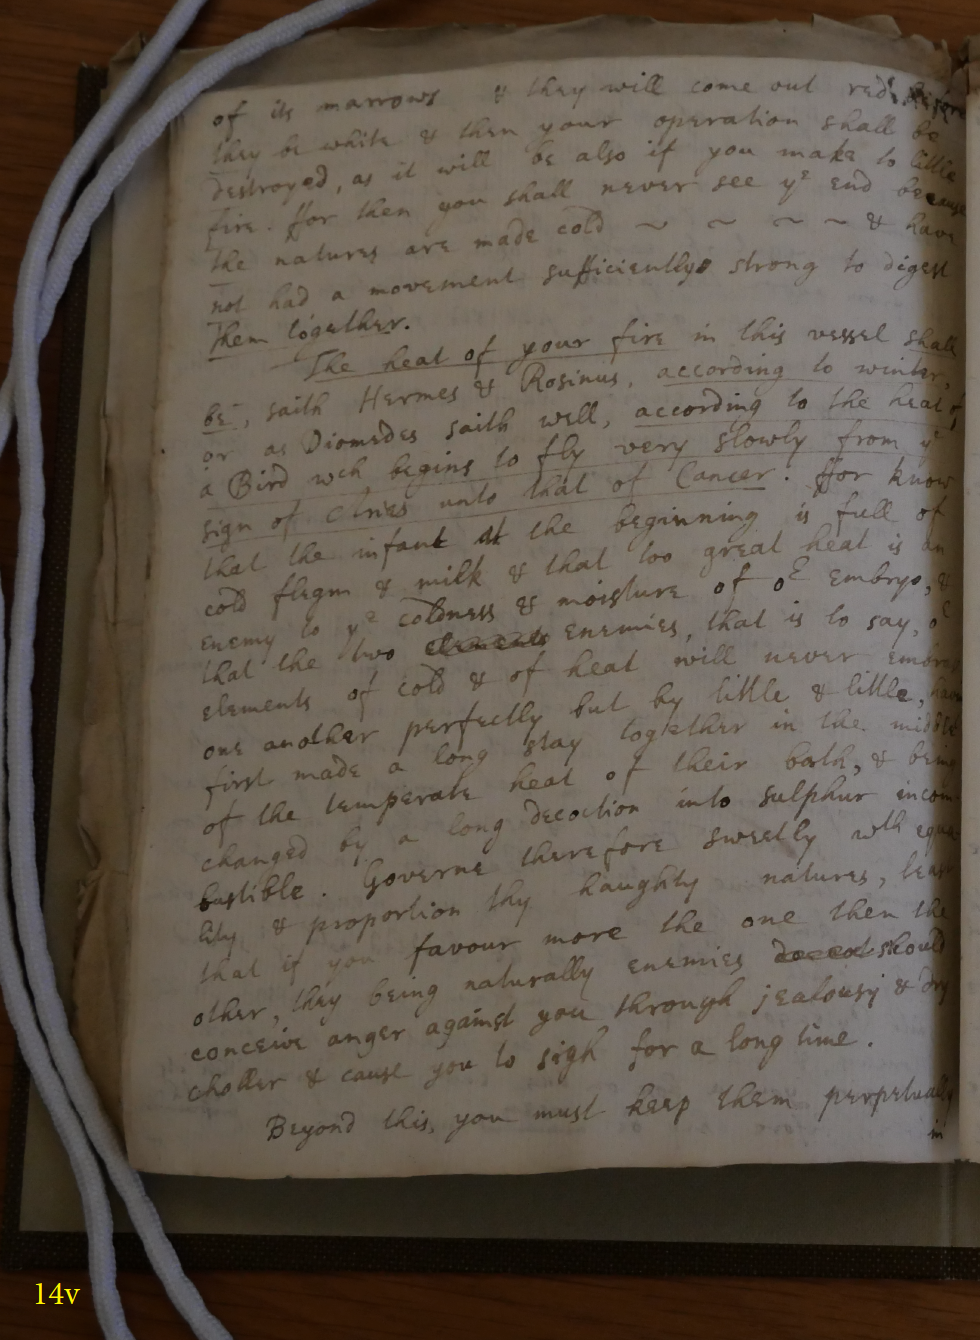 of its marrows & they will come out red, before
they be white & then your operation shall be
destroyed, as it will be also if you make to little
fire. ffor then you shall never see yᵉ end because
the natures are made cold ~ ~ ~ ~ & have
not had a movement sufficiently strong to digest
them together.
The heat of your fire in this vessel shall
be, saith Hermes & Rosinus, according to winter,
or as Diomedes saith well, according to the heat of
a Bird wch begins to fly very slowly from yᵉ
sign of Aries unto that of Cancer. ffor know
that the infant at the beginning is full of
cold flegm & milk & that too great heat is an
enemy to yᵉ coldness & moisture of oᵉ embryo, &
that the two elements enemies, that is to say, oᵉ
elements of cold & of heat will never embrace
one another perfectly but by little & little, having
first made a long stay together in the middle
of the temperate heat of their bath, & being
changed by a long decoction into sulphur incom-
bustible. Governe therefore sweetly wth equa-
lity & proportion thy haughty natures, least
that if you favour more the one then the
other, they being naturally enemies should
conceive anger against you through jealousy & dry
choller & cause you to sigh for a long time.
Beyond this, you must keep them perpetually
in
14v